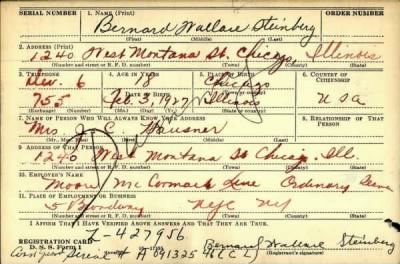 SERIAL NUMBER 1. NAME (Print) ORDER NUMBER
Bernard Wallace Steinberg
(First) (Middle) (Last)
2. ADDRESS (Print)
1240 West Montana St. Chicago, Illinois
(Number and street or R. F. D. number) (Town) (County) (State)
3. TELEPHONE 4. AGE IN YEARS 5. PLACE OF BIRTH 6. COUNTRY OF CITIZENSHIP
6 18 Chicago
755 DATE OF BIRTH
Feb. 3 1927 Illinois USA
7. NAME OF PERSON WHO WILL ALWAYS KNOW YOUR ADDRESS 8. RELATIONSHIP OF THAT PERSON
Mrs. J. C.
9. ADDRESS OF THAT PERSON
1240 West Montana St Chicago. Ill.
(Number and street or R. F. D. number) (Town) (County) (State)
10. EMPLOYER'S NAME
Moore McCormack Line Ordinary
11. PLACE OF EMPLOYMENT OR BUSINESS
5 Broadway NYC NY
(Number and street or R. F. D. number) (Town) (County) (State)
I AFFIRM THAT I HAVE VERIFIED ABOVE ANSWERS AND THAT THEY ARE TRUE.
Z-427956
REGISTRATION CARD
D. S. S. Form 1 Bernard Wallace Steinberg
(Registrant's signature)